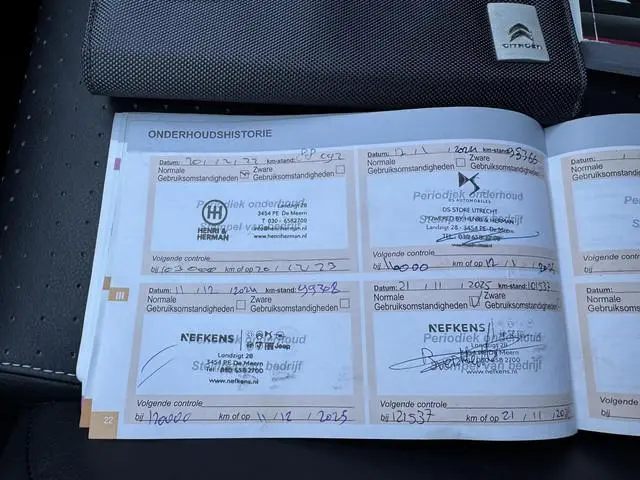 CITROËN
ONDERHOUDSHISTORIE
Datum: 20/12/22 km-stand:
Normale Gebruiksomstandigheden
Zware Gebruiksomstandigheden
Periodiek onderhoud
Stempel van bedrijf
HENRI & HERMAN
Landzigt 28
3454 PE De Meern
T 030 - 6582700
www.henriherman.nl
Volgende controle
bij km of op 20/12/23
Datum: 12/1/2024 km-stand: 95366
Normale Gebruiksomstandigheden
Zware Gebruiksomstandigheden
Periodiek onderhoud
DS AUTOMOBILES
DS STORE UTRECHT
POWERED BY HENRI & HERMAN
Landzigt 28 - 3454
Volgende controle
bij 110000 km of op 12/1/2025
Datum: 11/12/2024 km-stand: 99308
Normale Gebruiksomstandigheden
Zware Gebruiksomstandigheden
Periodiek onderhoud
Stempel van bedrijf
NEFKENS
Jeep
Landzigt 28
3454 PE De Meern
Tel: 030 658 2700
www.nefkens.nl
Volgende controle
bij 120000 km of op 11/12/2025
Datum: 21/11/2025 km-stand: 101537
Normale Gebruiksomstandigheden
Zware Gebruiksomstandigheden
Periodiek onderhoud
Stempel van bedrijf
NEFKENS
Landzigt 28
3454 PE De Meern
Tel: 030 658 2700
www.nefkens.nl
Volgende controle
bij 121537 km of op 21/11/
22